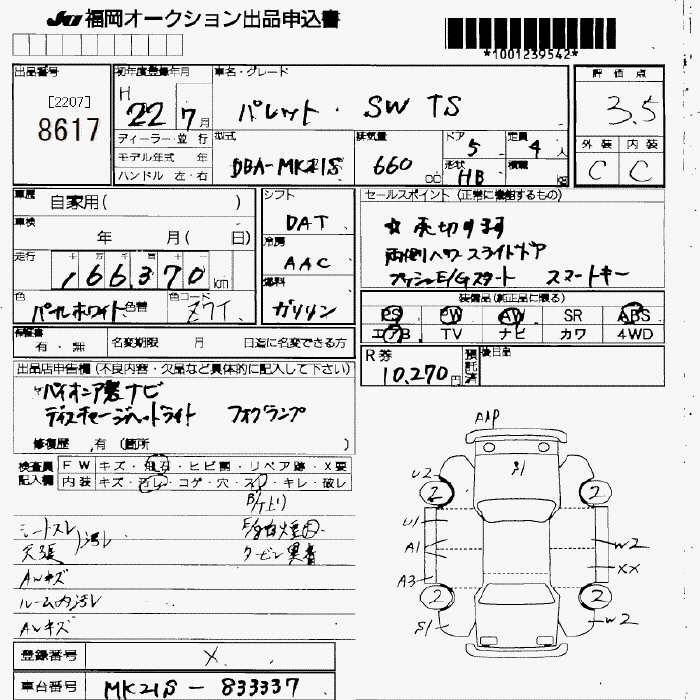 JU 福岡オークション出品申込書
*1001239542*
出品番号
[2207]
8617
初年度登録年月
H 22 7月
車名・グレード
パレット・SW TS
評価点
3.5
ディーラー・並行
モデル年式 年
ハンドル 左・右
型式
DBA-MK21S
排気量
660 CC
ドア
5
形状
HB
定員
4人
積載
kg
外装 内装
C C
車歴
自家用( )
車検
年 月( 日)
走行
166,370 km
色
パールホワイト 色替
色コード
Z7T
シフト
DAT
冷房
AAC
燃料
ガソリン
セールスポイント(正常に機能するもの)
☆売切ります
両側パワースライドドア
プッシュE/Gスタート スマートキー
装備品(純正品に限る)
PS PW AW SR ABS
エアB TV ナビ カワ 4WD
保証書
有・無
名変期限 月 日迄に名変できる方
R券
10,270円
預託済
後日品
出品店申告欄(不良内容・欠品など具体的に記入して下さい)
パイオニア製ナビ
ディスチャージヘッドライト フォグランプ
修復歴 有(箇所 )
検査員記入欄
FW キズ・飛石・ヒビ割・リペア跡・X要
内装 キズ・汚レ・コゲ・穴・スレ・キレ・破レ
シートスレ
天張 汚レ
E/G白煙
タービン異音
AWキズ
ルーム内汚レ
AWキズ
登録番号
X
車台番号
MK21S-833337
A1P
U2 2 2
U1
A1
A3
W2
XX
2 2
S1
W2